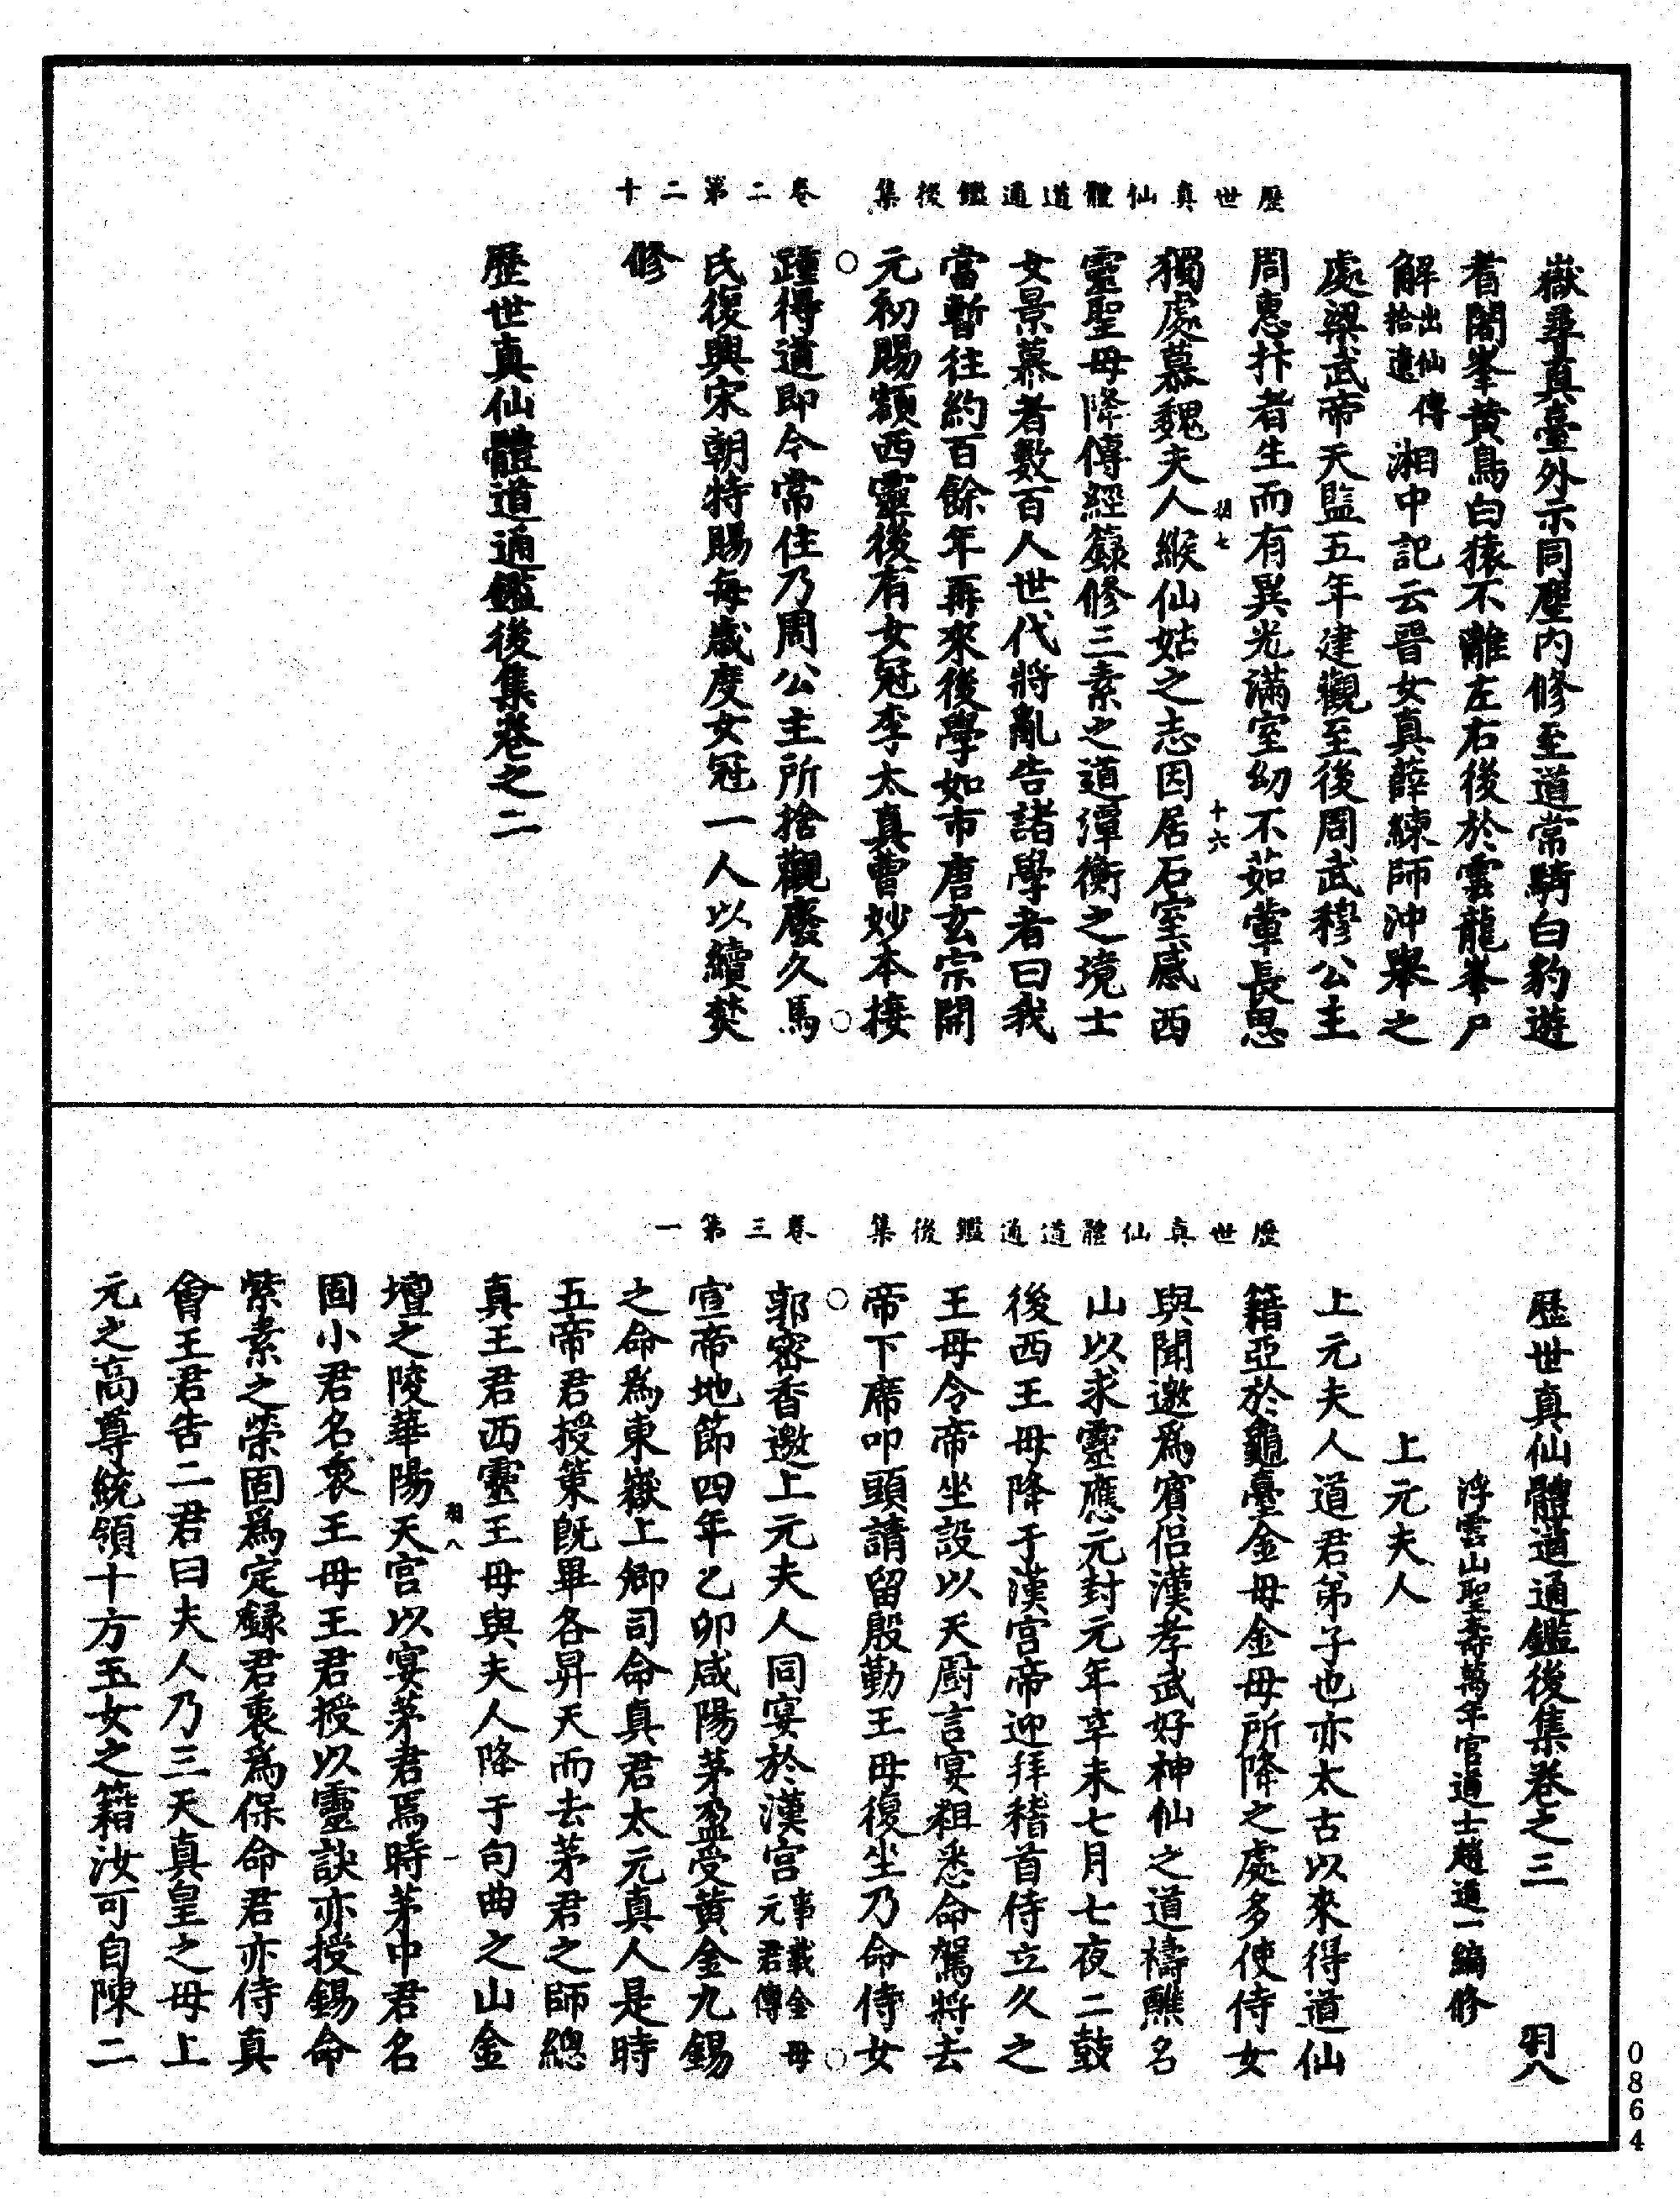 歷世真仙體道通鑑後集　卷二第二十
嶽尋真臺外示同塵内修至道常騎白豹遊
耆闍峯黄鳥白猿不離左右後於雲龍峯尸
解出仙傳拾遺湘中記云晉女真薛練師沖舉之
處梁武帝天監五年建觀至後周武穆公主
周惠抃者生而有異光滿室幼不茹葷長思
翔七　十六
獨處慕魏夫人緱仙姑之志因居石室感西
靈聖母降傳經籙修三素之道潭衡之境士
女景慕者數百人世代將亂告諸學者曰我
當暫往約百餘年再來後學如市唐玄宗開
元初賜額西靈後有女冠李太真曹妙本接
踵得道即今常住乃周公主所捨觀廢久馬
氏復興宋朝特賜每歲度女冠一人以續焚
修
歷世真仙體道通鑑後集卷之二
歷世真仙體道通鑑後集　卷三第一
歷世真仙體道通鑑後集卷之三　羽八
浮雲山聖壽萬年宮道士趙道一編修
上元夫人
上元夫人道君弟子也亦太古以來得道仙
籍亞於龜臺金母金母所降之處多使侍女
與聞邀爲賓侣漢孝武好神仙之道禱醮名
山以求靈應元封元年辛未七月七夜二鼓
後西王母降于漢宫帝迎拜稽首侍立久之
王母令帝坐設以天厨言宴粗悉命駕將去
帝下席叩頭請留殷勤王母復坐乃命侍女
郭密香邀上元夫人同宴於漢宫事載金母元君傳
宣帝地節四年乙卯咸陽茅盈受黄金九錫
之命爲東嶽上卿司命真君太元真人是時
五帝君授策既畢各昇天而去茅君之師總
真王君西靈王母與夫人降于句曲之山金
翔八　一
壇之陵華陽天宫以宴茅君焉時茅中君名
固小君名衷王母王君授以靈訣亦授錫命
紫素之榮固爲定録君衷爲保命君亦侍真
會王君告二君曰夫人乃三天真皇之母上
元之高尊統領十方玉女之籍汝可自陳二
0864